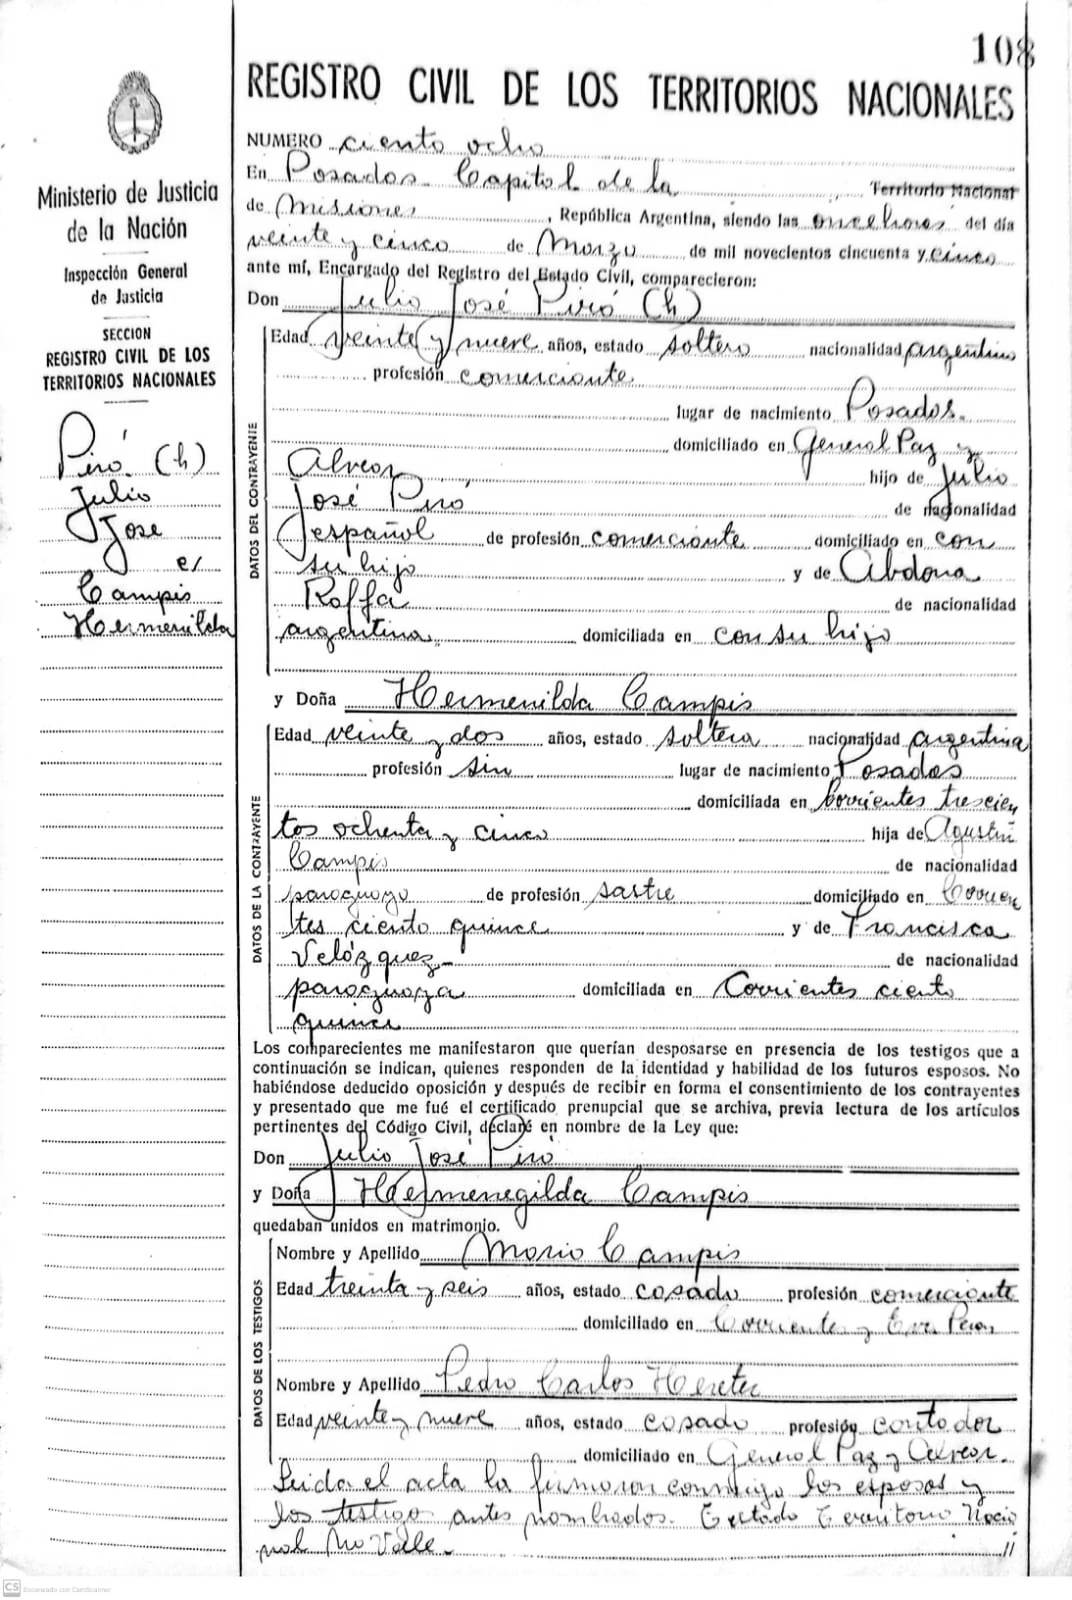 108
REGISTRO CIVIL DE LOS TERRITORIOS NACIONALES
Ministerio de Justicia
de la Nación
Inspección General
de Justicia
SECCION
REGISTRO CIVIL DE LOS
TERRITORIOS NACIONALES
Piró (h)
Julio
Jose
c/
Campis
Hermenilda
NUMERO ciento ocho
En Posadas Capital de la Territorio Nacional
de Misiones, República Argentina, siendo las once horas del día
veinte y cinco de Marzo de mil novecientos cincuenta y cinco
ante mí, Encargado del Registro del Estado Civil, comparecieron:
Don Julio José Piró (h)
DATOS DEL CONTRAYENTE
Edad veinte y nueve años, estado soltero nacionalidad argentino
profesión comerciante
lugar de nacimiento Posadas.
domiciliado en General Paz y
Alvear hijo de Julio
José Piró de nacionalidad
español de profesión comerciante domiciliado en con
su hijo y de Abdona
Roffa de nacionalidad
argentina domiciliada en con su hijo
y Doña Hermenilda Campis
DATOS DE LA CONTRAYENTE
Edad veinte y dos años, estado soltera nacionalidad argentina
profesión sin lugar de nacimiento Posadas
domiciliada en Corrientes trescien
tos ochenta y cinco hija de Agustín
Campis de nacionalidad
paraguayo de profesión sastre domiciliado en Corrien
tes ciento quince y de Francisca
Velózquez- de nacionalidad
paraguaya domiciliada en Corrientes ciento
quince
Los comparecientes me manifestaron que querían desposarse en presencia de los testigos que a
continuación se indican, quienes responden de la identidad y habilidad de los futuros esposos. No
habiéndose deducido oposición y después de recibir en forma el consentimiento de los contrayentes
y presentado que me fué el certificado prenupcial que se archiva, previa lectura de los artículos
pertinentes del Código Civil, declaré en nombre de la Ley que:
Don Julio José Piró
y Doña Hermenegilda Campis
quedaban unidos en matrimonio.
DATOS DE LOS TESTIGOS
Nombre y Apellido Mario Campis
Edad treinta y seis años, estado casado profesión comerciante
domiciliado en Corrientes y Eva Peron
Nombre y Apellido Pedro Carlos Hereter
Edad veinte y nueve años, estado casado profesión contador
domiciliado en General Paz y Alvear.
Leida el acta la firmaron conmigo los esposos y
los testigos antes nombrados. Testado Territorio Nacio
nal No Valle. //
CS Escaneado con CamScanner